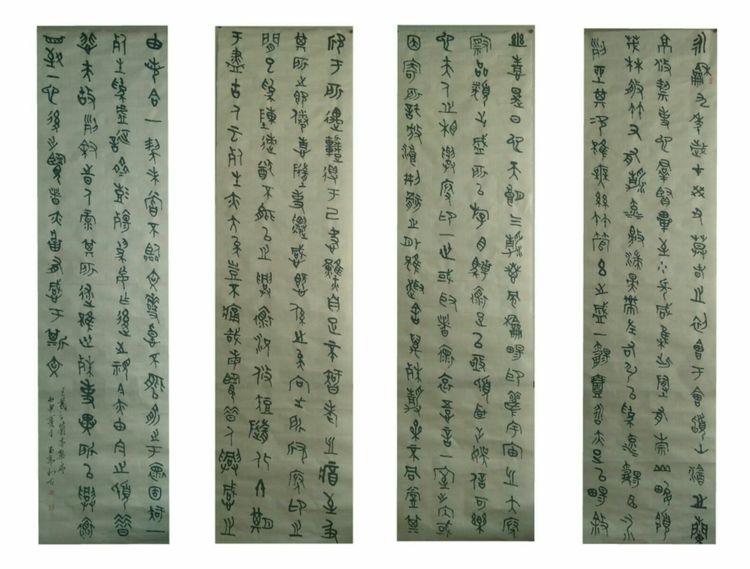 永和九年歲在癸丑暮春之初會于會稽山陰之蘭
亭修禊事也群賢畢至少長咸集此地有崇山峻領
茂林修竹又有清流激湍映帶左右引以為流觴曲水
列坐其次雖無絲竹管弦之盛一觴一詠亦足以暢敘
幽情是日也天朗氣清惠風和暢仰觀宇宙之大俯
察品類之盛所以游目騁懷足以極視聽之娛信可樂
也夫人之相與俯仰一世或取諸懷抱悟言一室之內或
因寄所託放浪形骸之外雖趣舍萬殊靜躁不同當其
欣于所遇暫得于己快然自足不知老之將至及
其所之既倦情隨事遷感慨係之矣向之所欣俛仰之
間已為陳迹猶不能不以之興懷況修短隨化終期
于盡古人云死生亦大矣豈不痛哉每覽昔人興感之
由若合一契未嘗不臨文嗟悼不能喻之于懷固知一
死生為虛誕齊彭殤為妄作後之視今亦由今之視昔
悲夫故列敘時人錄其所述雖世殊事異所以興懷
其致一也後之覽者亦將有感于斯文
王羲之蘭亭集序